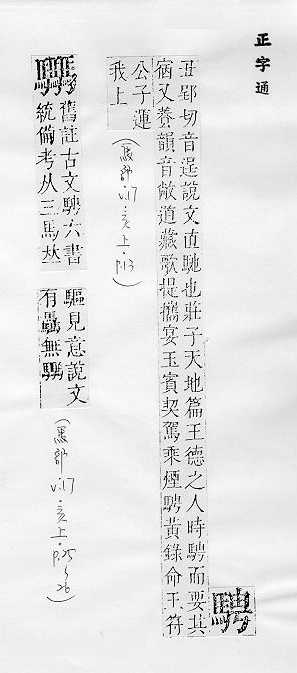 正字通
騁
丑郢切音逞說文直馳也莊子天地篇王德之人時騁而要其
宿又養韻音敞道藏歌提攜宴玉賓契駕乘煙騁黃錄命玉符
公子運
我上
(馬部 v.17・亥上・p.13)
舊註古文騁六書
統備考从三馬𠀤
驅見意說文
有驫無
(馬部 v.17・亥上・p.25~26)